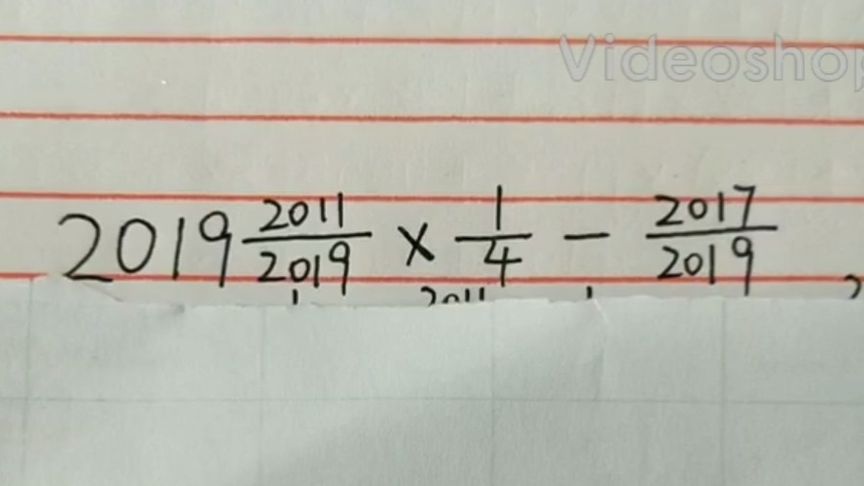 Videoshop
2019 2011/2019 × 1/4 − 2017/2019